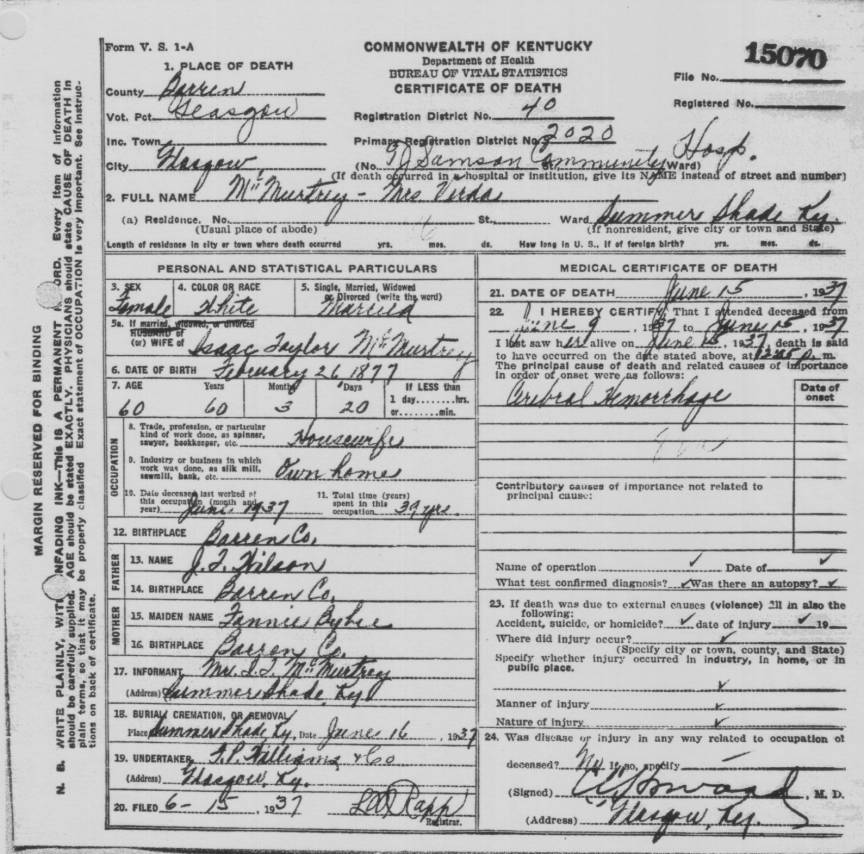 Form V. S. 1-A
COMMONWEALTH OF KENTUCKY
Department of Health
BUREAU OF VITAL STATISTICS
CERTIFICATE OF DEATH
15070
File No.
Registered No.
1. PLACE OF DEATH
County Barren
Vot. Pct. Glasgow
Inc. Town
City Glasgow
Registration District No. 40
Primary Registration District No. 2020
(No. T J Samson Community Hosp. St. Ward)
(If death occurred in a hospital or institution, give its NAME instead of street and number)
2. FULL NAME McMurtrey - Mrs Verda
(a) Residence. No. St., Ward. Summer Shade Ky.
(Usual place of abode) (If nonresident, give city or town and State)
Length of residence in city or town where death occurred yrs. mos. ds. How long in U. S., if of foreign birth? yrs. mos. ds.
PERSONAL AND STATISTICAL PARTICULARS
3. SEX 4. COLOR OR RACE 5. Single, Married, Widowed or Divorced (write the word)
Female White Married
5a. If married, widowed, or divorced
HUSBAND of
(or) WIFE of Isaac Taylor McMurtrey
6. DATE OF BIRTH February 26 1877
7. AGE Years Months Days If LESS than
1 day........hrs.
or........min.
60 60 3 20
OCCUPATION
8. Trade, profession, or particular kind of work done, as spinner, sawyer, bookkeeper, etc. Housewife
9. Industry or business in which work was done, as silk mill, sawmill, bank, etc. Own home
10. Date deceased last worked at this occupation (month and year) June 1937
11. Total time (years) spent in this occupation 39 yrs.
12. BIRTHPLACE Barren Co.
FATHER
13. NAME J. T. Wilson
14. BIRTHPLACE Barren Co.
MOTHER
15. MAIDEN NAME Fannie Bybee
16. BIRTHPLACE Barren Co.
17. INFORMANT Mr. I. T. McMurtrey
(Address) Summer Shade, Ky.
18. BURIAL, CREMATION, OR REMOVAL
Place Summer Shade, Ky. Date June 16, 1937
19. UNDERTAKER Williams & Co
(Address) Glasgow, Ky.
20. FILED 6-15, 1937 Rapp
Registrar.
MEDICAL CERTIFICATE OF DEATH
21. DATE OF DEATH June 15, 1937
22. I HEREBY CERTIFY, That I attended deceased from
June 9, 1937 to June 15, 1937
I last saw her alive on June 15, 1937, death is said
to have occurred on the date stated above, at m.
The principal cause of death and related causes of importance
in order of onset were as follows:
Date of onset
Cerebral Hemorrhage
Contributory causes of importance not related to
principal cause:
Name of operation ✓ Date of ✓
What test confirmed diagnosis? ✓ Was there an autopsy? ✓
23. If death was due to external causes (violence) fill in also the
following:
Accident, suicide, or homicide? ✓ date of injury ✓ 19
Where did injury occur? ✓
(Specify city or town, county, and State)
Specify whether injury occurred in industry, in home, or in
public place.
✓
Manner of injury ✓
Nature of injury ✓
24. Was disease or injury in any way related to occupation of
deceased? No If so, specify
(Signed) , M. D.
(Address) Glasgow, Ky.
MARGIN RESERVED FOR BINDING
N. B. WRITE PLAINLY, WITH UNFADING INK—THIS IS A PERMANENT RECORD. Every item of information
should be carefully supplied. AGE should be stated EXACTLY. PHYSICIANS should state CAUSE OF DEATH in
plain terms, so that it may be properly classified. Exact statement of OCCUPATION is very important. See instruc-
tions on back of certificate.